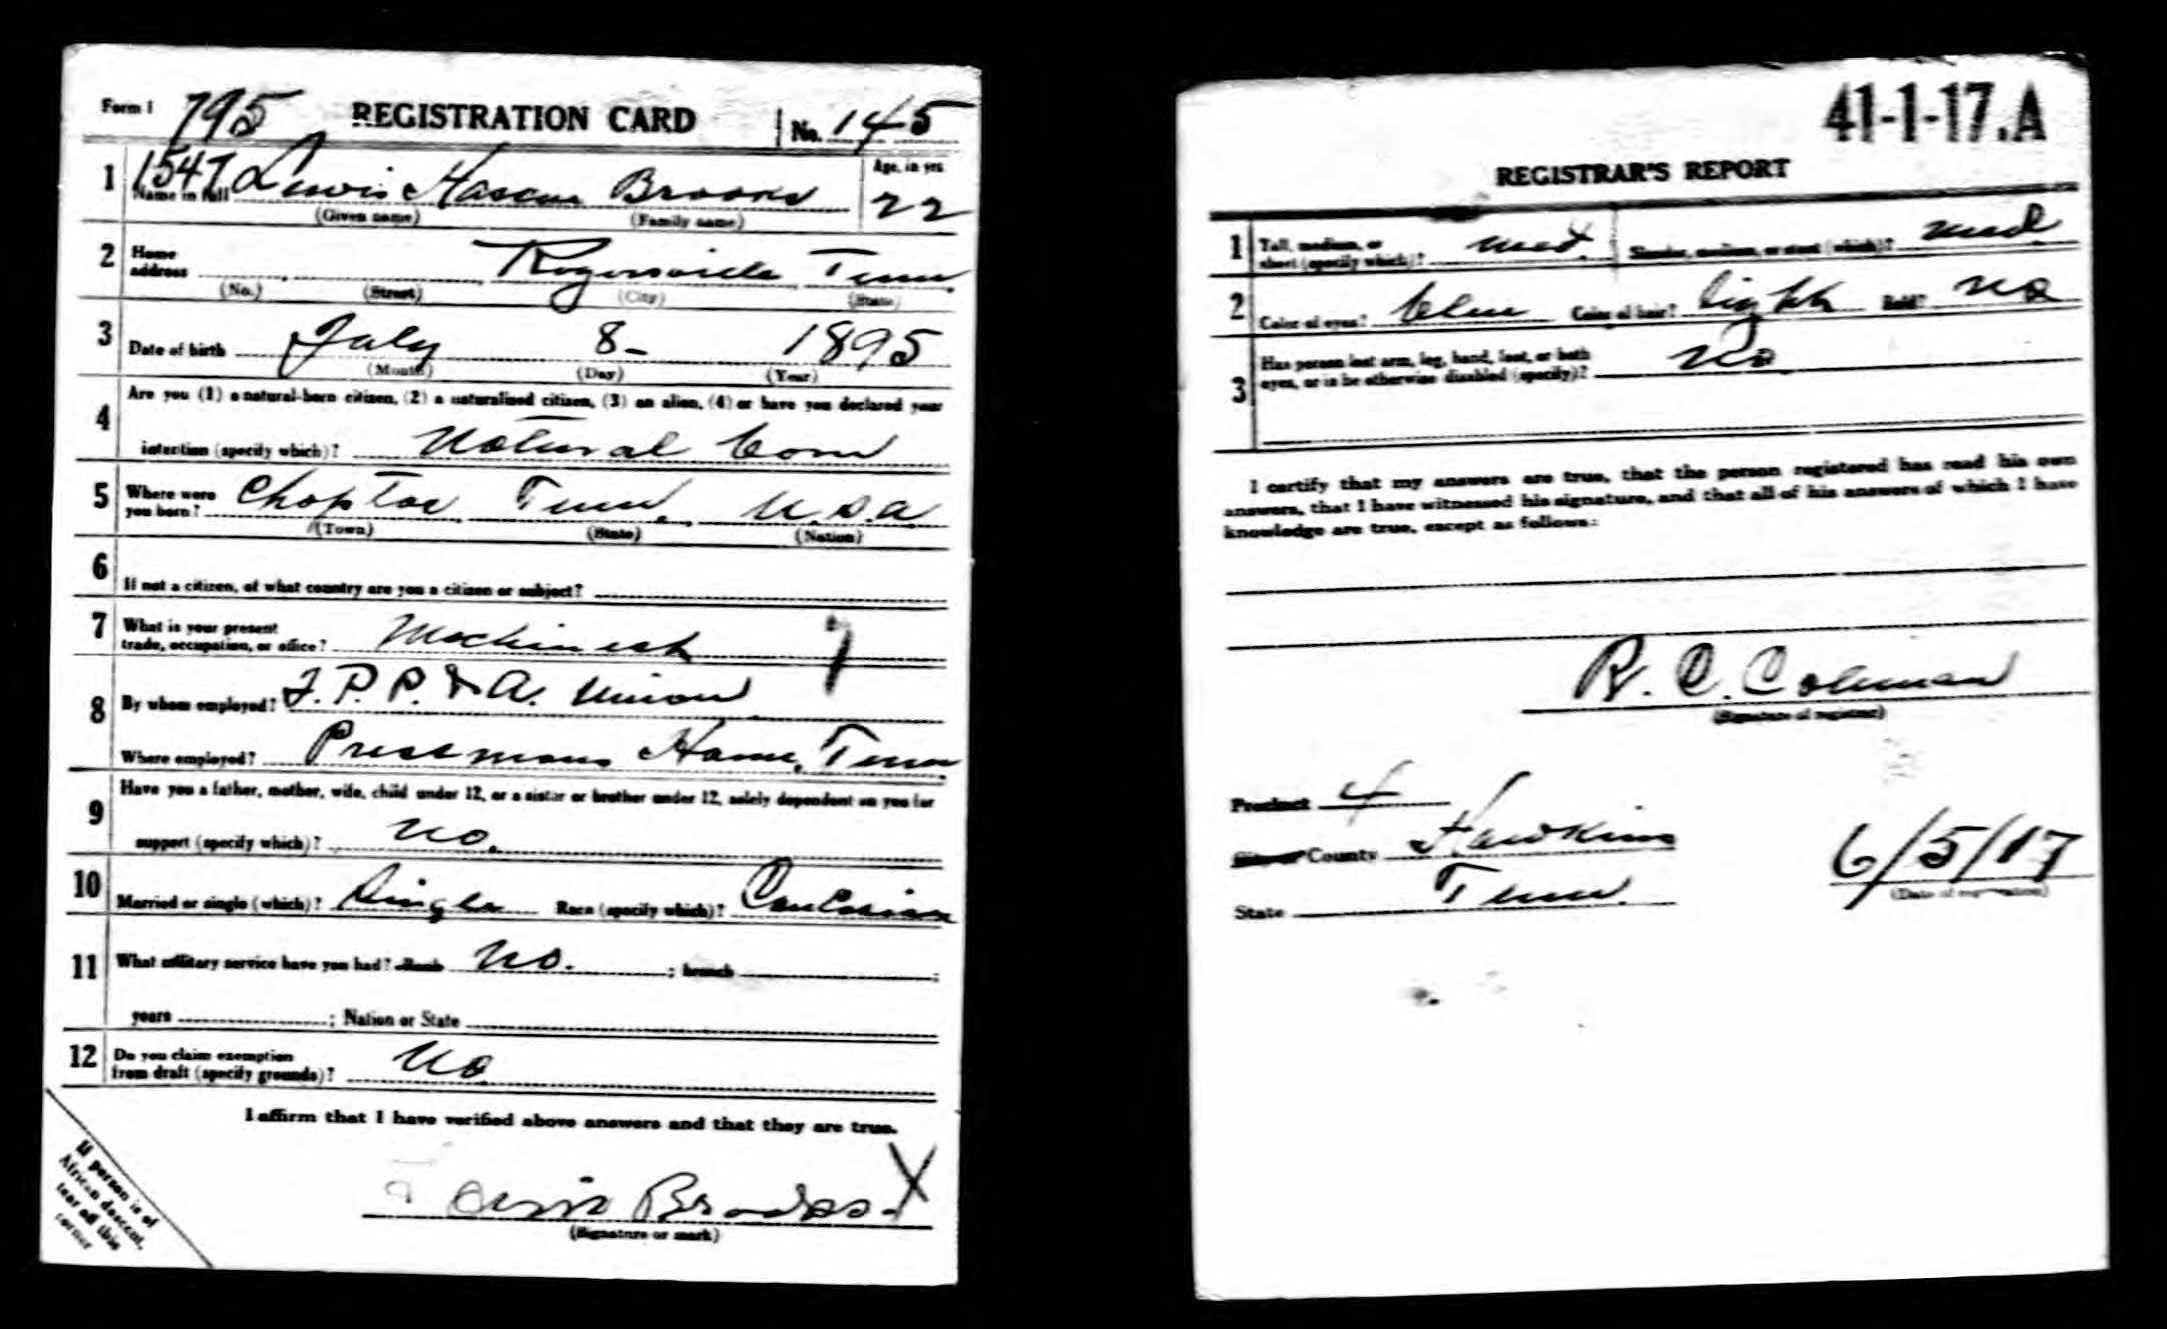 Form 1 795 REGISTRATION CARD No. 145
1 1547 Name in full Lewis Brooks Age, in yrs
(Given name) (Family name) 22
2 Home address Rogersville Tenn.
(No.) (Street) (City) (State)
3 Date of birth July 8- 1895
(Month) (Day) (Year)
4 Are you (1) a natural-born citizen, (2) a naturalized citizen, (3) an alien, (4) or have you declared your
intention (specify which)? Natural born
5 Where were you born? Choptac Tenn. U.S.A
(Town) (State) (Nation)
6 If not a citizen, of what country are you a citizen or subject?
7 What is your present
trade, occupation, or office? Machinest
8 By whom employed? I. P. P. & A. Union
Where employed? Pressmans Home, Tenn
9 Have you a father, mother, wife, child under 12, or a sister or brother under 12, solely dependent on you for
support (specify which)? No.
10 Married or single (which)? Single Race (specify which)? Caucasian
11 What military service have you had? Rank No. ; branch ;
years ; Nation or State
12 Do you claim exemption
from draft (specify grounds)? No
I affirm that I have verified above answers and that they are true.
Brooks X
(Signature or mark)
If person is of
African descent,
tear off this
corner
41-1-17.A
REGISTRAR'S REPORT
1 Tall, medium, or
short (specify which)? med. Slender, medium, or stout (which)? med
2 Color of eyes? blue Color of hair? light Bald? No
3 Has person lost arm, leg, hand, foot, or both
eyes, or is he otherwise disabled (specify)? No
I certify that my answers are true, that the person registered has read his own
answers, that I have witnessed his signature, and that all of his answers of which I have
knowledge are true, except as follows:
R. C. Coleman
(Signature of registrar)
Precinct 4
City or County Hawkins
State Tenn.
6/5/17
(Date of registration)